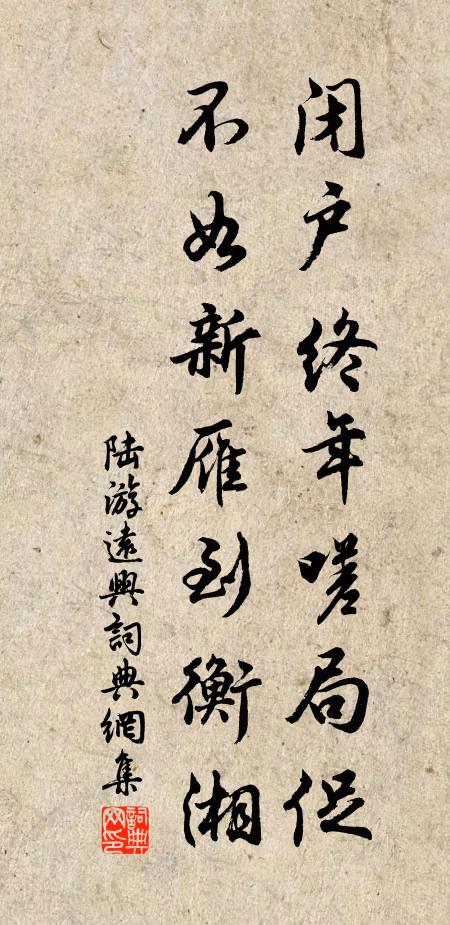 闭户终年嗟局促
不如新雁到衡湘
陆游遠興詞典網集
詞典网印